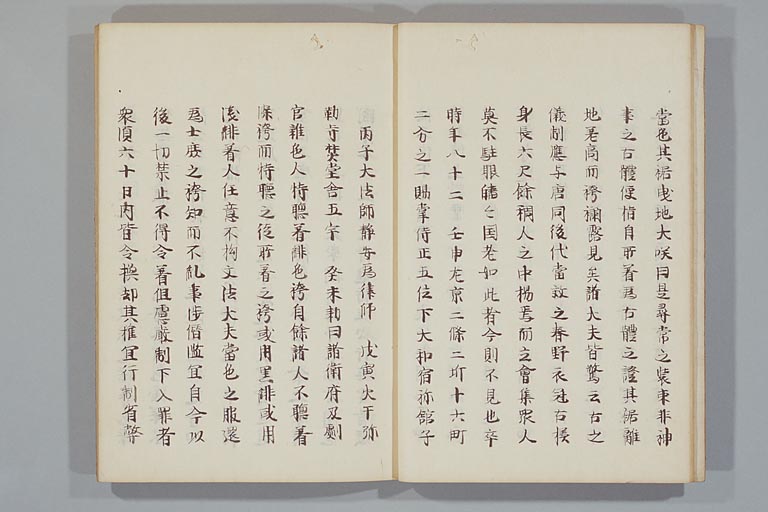 當色其裾曳地大咲曰是尋常之裝束非神
事之古體便指自所著為古體之證其裾離
地著高而袴襴露見矣諸大夫皆驚云古之
儀制應与唐同後代當效之春野衣冠古樣
身長六尺餘稠人之中揚焉而立會集眾人
莫不駐眼唯国老如此者今則不見也卒
時年八十二 壬申左京二條二坊十六町
二分之一賜掌侍正五位下大和宿祢舘子
丙子大法師靜安為律師 戊寅火于弥
勒寺焚堂舍五宇 癸未勅曰諸衛府及劇
官雜色人特聽著緋色袴自餘諸人不聽著
除袴而特聽之後所著之袴或用黑緋或用
淺緋著人任意不拘文法大夫當色之服還
為士庶之袴知而不糺事涉僭濫宜自今以
後一切禁止不得令著但慮嚴制下入罪者
眾須六十日內皆令換却其權宜行制省弊